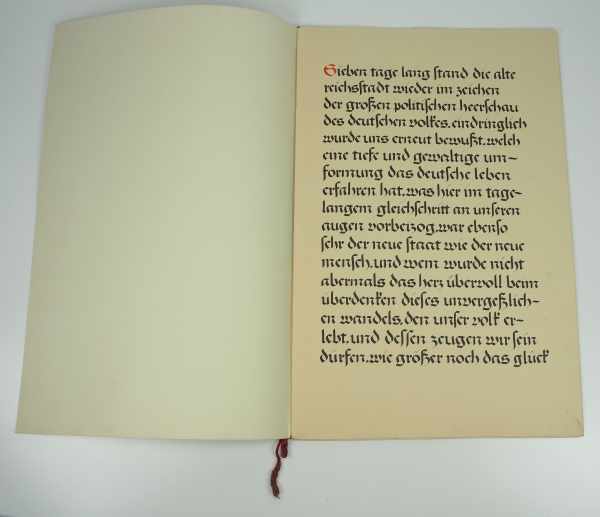 Sieben tage lang stand die alte
reichsstadt wieder im zeichen
der großen politischen heerschau
des deutschen volkes. eindringlich
wurde uns erneut bewußt, welch
eine tiefe und gewaltige um-
formung das deutsche leben
erfahren hat. was hier im tage-
langem gleichschritt an unseren
augen vorbeizog, war ebenso
sehr der neue staat wie der neue
mensch. und wem wurde nicht
abermals das herz übervoll beim
überdenken dieses unvergeßlich-
en wandels, den unser volk er-
lebt, und dessen zeugen wir sein
durfen. wie größer noch das glück